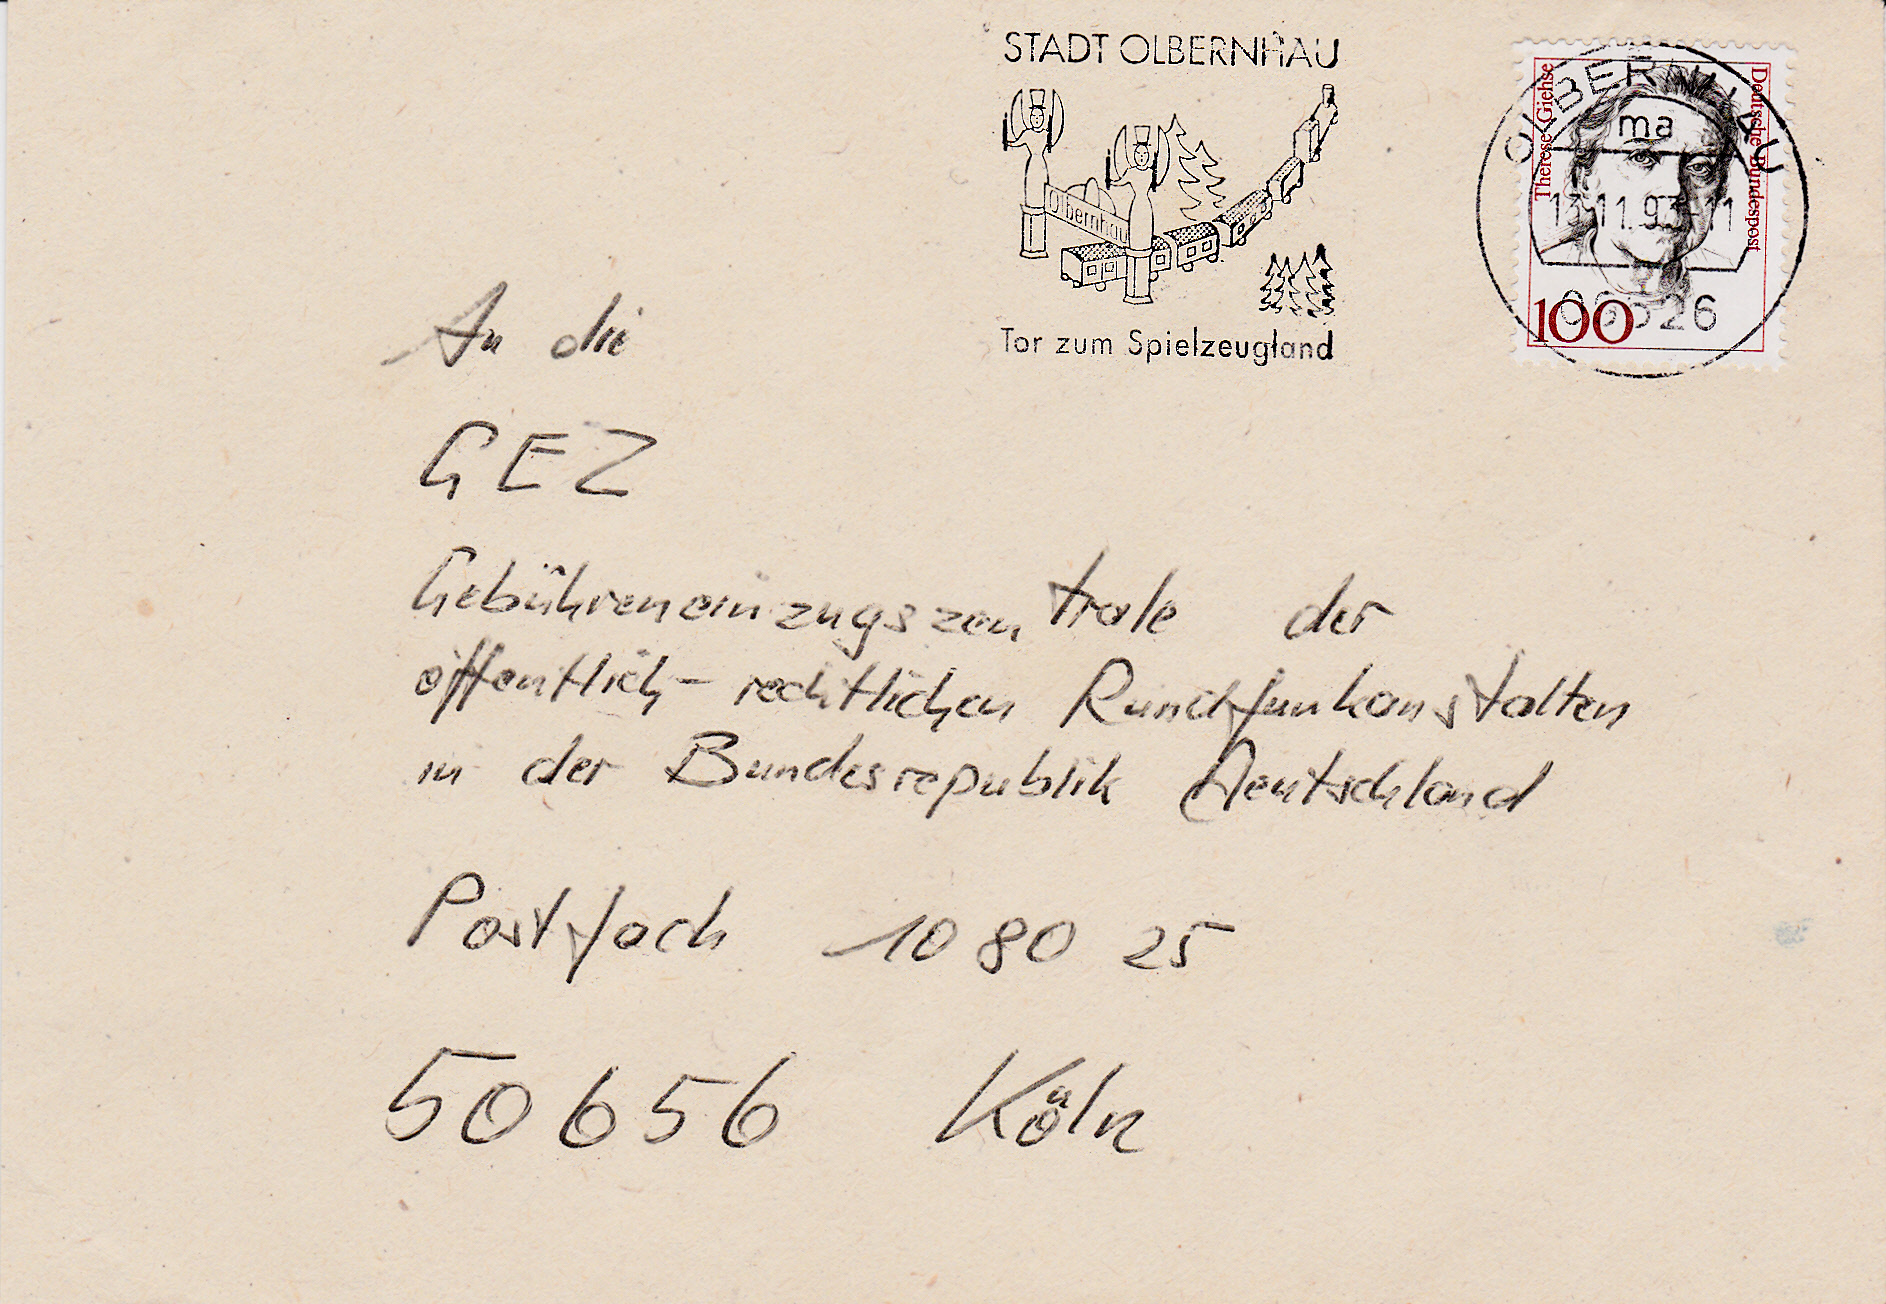 STADT OLBERNHAU
Olbernhau
Tor zum Spielzeugland
OLBERNHAU
ma
13.11.93-11
09526
Therese Giehse
Deutsche Bundespost
100
An die
GEZ
Gebühreneinzugszentrale der
öffentlich-rechtlichen Rundfunkanstalten
in der Bundesrepublik Deutschland
Postfach 10 80 25
50656 Köln